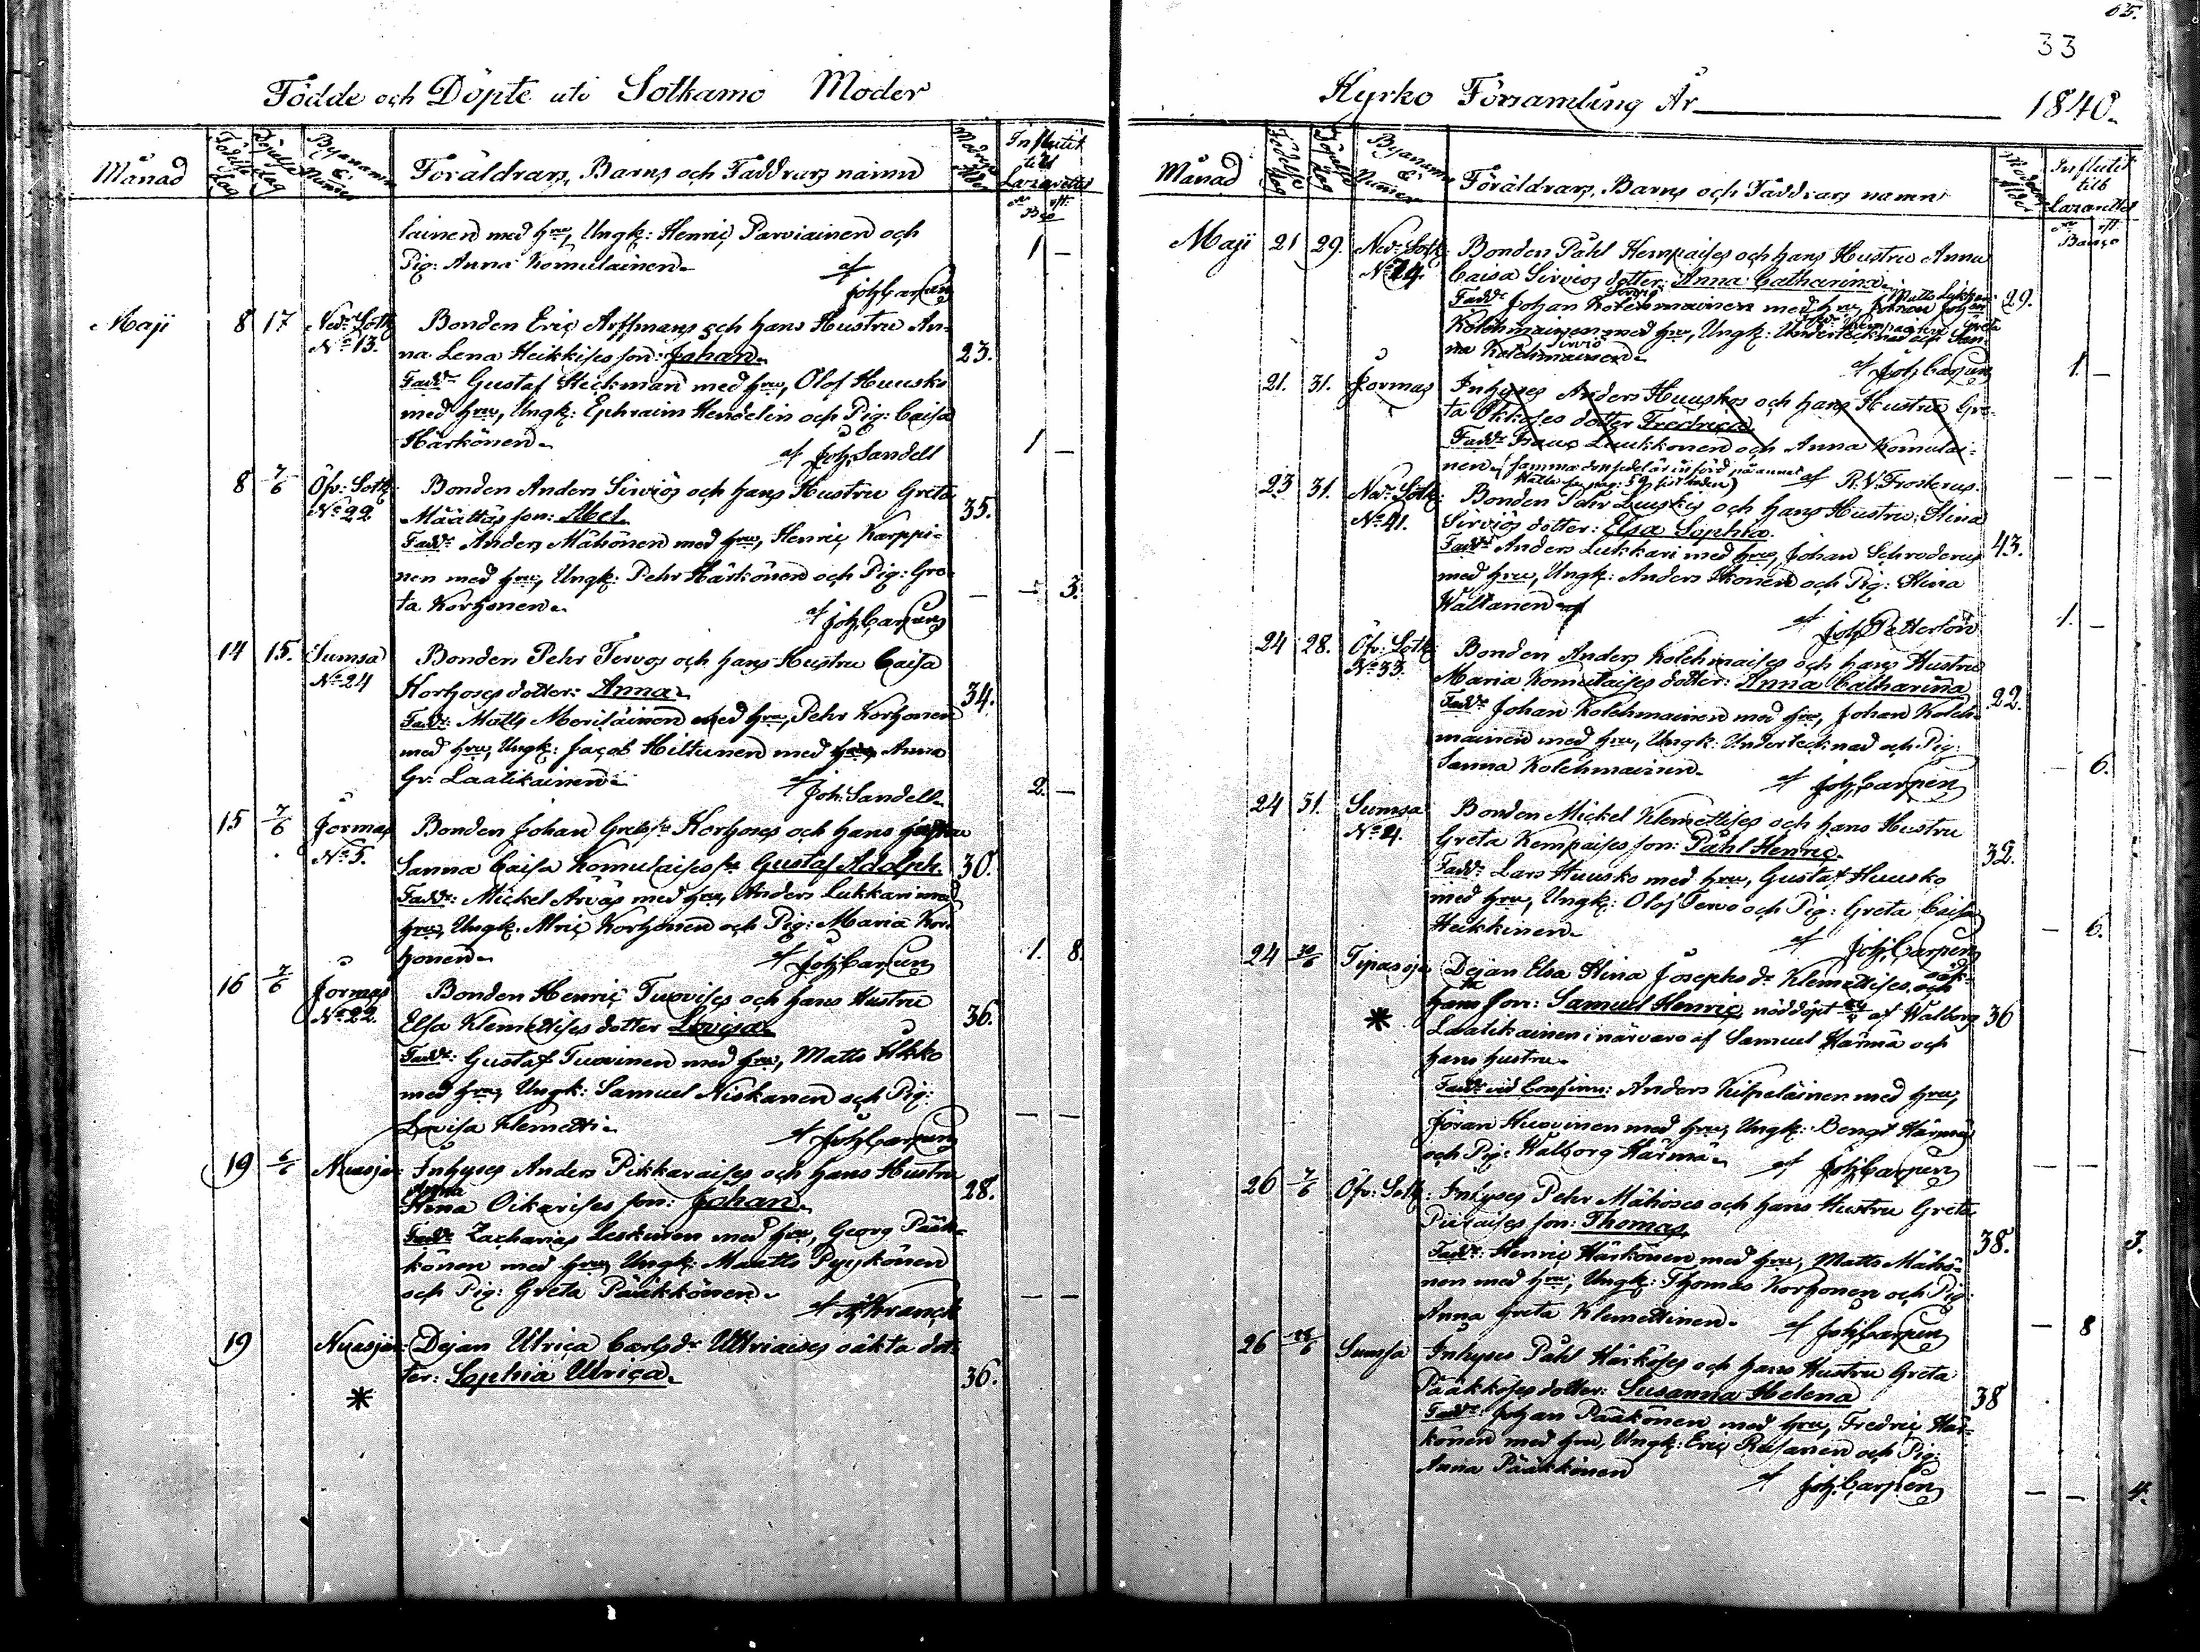 65.
33
Födde och Döpte uti Sotkamo Moder
Månad
Födelse dag
Döpelse dag
Byanamn & Numer
Föräldrars, Barns och Faddrars namn
Modrens ålder
Influtit till Lazarettet
lainen med hru, Ungk: Henric Parviainen och
Pig: Anna Komulainen
af
Joh Carpén
1 —
Maji 8 17 Ned: Sotk: Bonden Eric Arffmans och hans Hustru An-
No 13. na Lena Heikkises son: Johan 23.
Fadd: Gustaf Heikman med hru, Olof Huusko
med hru, Ungk: Ephraim Hendelin och Pig: Caisa
Härkönen
af Joh Sandell 1 —
8 7/6 Öfv: Sotk: Bonden Anders Sirviös och hans Hustru Greta
No 22 Määttäs son: Abel 35.
Fadd: Anders Mähönen med hru, Henric Karppi-
nen med hru, Ungk: Pehr Härkönen och Pig: Gre-
ta Korhonen — 3.
af Joh Carpén
14 15. Sumsa Bonden Pehr Tervos och hans Hustru Caisa
No 24 Korhoses dotter: Anna 34.
Fadd: Matts Meriläinen med hru, Pehr Korhonen
med hru, Ungk: Jacob Hiltunen med Anna
Gr: Laatikainen
af Joh: Sandell 2. —
15 7/6 Jormas Bonden Johan Korhoses och hans hustru
No 5. Sanna Caisa Komulaises sn Gustaf Adolph. 30.
Fadd: Mickel Arvas med hru, Anders Lukkari med
hru, Ungk: Alric Korhonen och Pig: Maria Kor-
honen
af Joh Carpén 1. 8.
16 7/6 Jormas Bonden Henric Tuovises och hans Hustru
No 22. Elsa Klemettises dotter Lovisa 36.
Fadd: Gustaf Tuovinen med hru, Matts Ukko
med hru, Ungk: Samuel Niskanen och Pig:
Lovisa Klemetti — —
af Joh Carpén
19 6/6 Nuasjär: Inhyses Anders Pikkaraises och hans Hustru
Anna
Stina Oikarises son: Johan 28.
Fadd: Zacharias Leskinen med hru, Georg Pääk-
könen med hru, Ungk: Matts Pyykönen
och Pig: Greta Pääkkönen
af Franck — —
19 Nuasjär: Dejan Ulrica Carlsdr Ultriaises oäkta dot-
ter: Sophia Ulrica 36.
*
Kyrko Församling År 1840.
Månad
Födelse dag
Döpelse dag
Byanamn & Numer
Föräldrars, Barns och Faddrars namn
Modrens ålder
Influtit till Lazarettet
Maji 21 29. Ned: Sotk: Bonden Påhl Kempaises och hans Hustru Anna
No 24. Caisa Sirviös dotter: Anna Catharina 29.
Fadd: Johan Kolehmainen med hru,
Kolehmainen med hru, Ungk: Undertecknad och San-
na Kolehmainen
af Joh Carpén 1. —
21. 31. Jormas Inhyses Anders Huuskos och hans Hustru Gre-
ta Okkoses dotter Fredrica
Fadd: Isaac Luukkonen och Anna Komulai-
nen
af R. V. Frosterus. — —
23 31. Ned: Sotk: Bonden Pehr Luuskis och hans Hustru Stina
No 41. Sirviös dotter: Elsa Sophia. 43.
Fadd: Anders Lukkari med hru, Johan Schroderus
med hru, Ungk: Anders Ikonen och Pig: Stina
Waltanen
af Joh Petterson 1. —
24 28. Öfv: Sotk: Bonden Anders Kolehmaises och hans Hustru
No 33. Maria Komulaises dotter: Anna Catharina 22.
Fadd: Johan Kolehmainen med hru, Johan Koleh-
mainen med hru, Ungk: Undertecknad och Pig:
Sanna Kolehmainen — 6.
af Joh Carpén
24 31. Sumsa Bonden Mickel Klemettises och hans Hustru
No 4. Greta Kempaises son: Påhl Henric 32.
Fadd: Lars Huusko med hru, Gustaf Huusko
med hru, Ungk: Olof Tervo och Pig: Greta Caisa
Heikkinen — 6.
af Joh Carpén
24 Tipasoja Dejan Elsa Stina Josephs dr Klemettises oäk-
ta son: Samuel Henric, nöddöpt af Walborg 36
* Laatikainen i närvaro af Samuel Härmä och
hans hustru
Fadd: vid Confirm: Anders Kilpeläinen med hru,
Jöran Huovinen med hru, Ungk: Bengt Härmä
och Pig: Walborg Härmä — —
af Joh Carpén
26 7/6 Öfv: Sotk: Inhyses Pehr Mähöses och hans Hustru Greta
Piiraises son: Thomas, 38. 3.
Fadd: Henric Härkönen med hru, Matts Mähö-
nen med hru, Ungk: Thomas Korhonen och Pig:
Anna Greta Klemettinen — 8
af Joh Carpén
26 Sumsa Inhyses Påhl Härköses och hans Hustru Greta
Pääkköses dotter: Susanna Helena 38
Fadd: Johan Pääkönen med hru, Fredric Här-
könen med hru, Ungk: Eric Rusanen och Pig:
Anna Pääkkönen
af Joh Carpén — — 4.